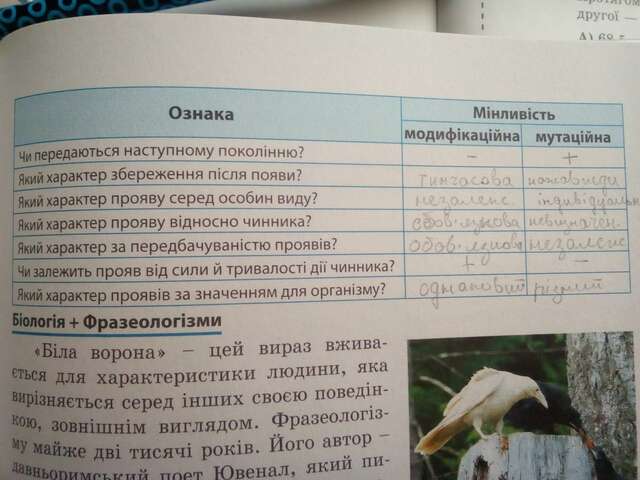 другої —
А) 68,5
Ознака
Мінливість
модифікаційна мутаційна
Чи передаються наступному поколінню? - +
Який характер збереження після появи? тимчасова
Який характер прояву серед особин виду? незалеж індивідуальн
Який характер прояву відносно чинника? обов'язкова невизначен
Який характер за передбачуваністю проявів? обов'язкова незалеж
Чи залежить прояв від сили й тривалості дії чинника? + -
Який характер проявів за значенням для організму? однаковий різний
Біологія + Фразеологізми
«Біла ворона» – цей вираз вжива-
ється для характеристики людини, яка
вирізняється серед інших своєю поведін-
кою, зовнішнім виглядом. Фразеологіз-
му майже дві тисячі років. Його автор –
давньоримський поет Ювенал, який пи-